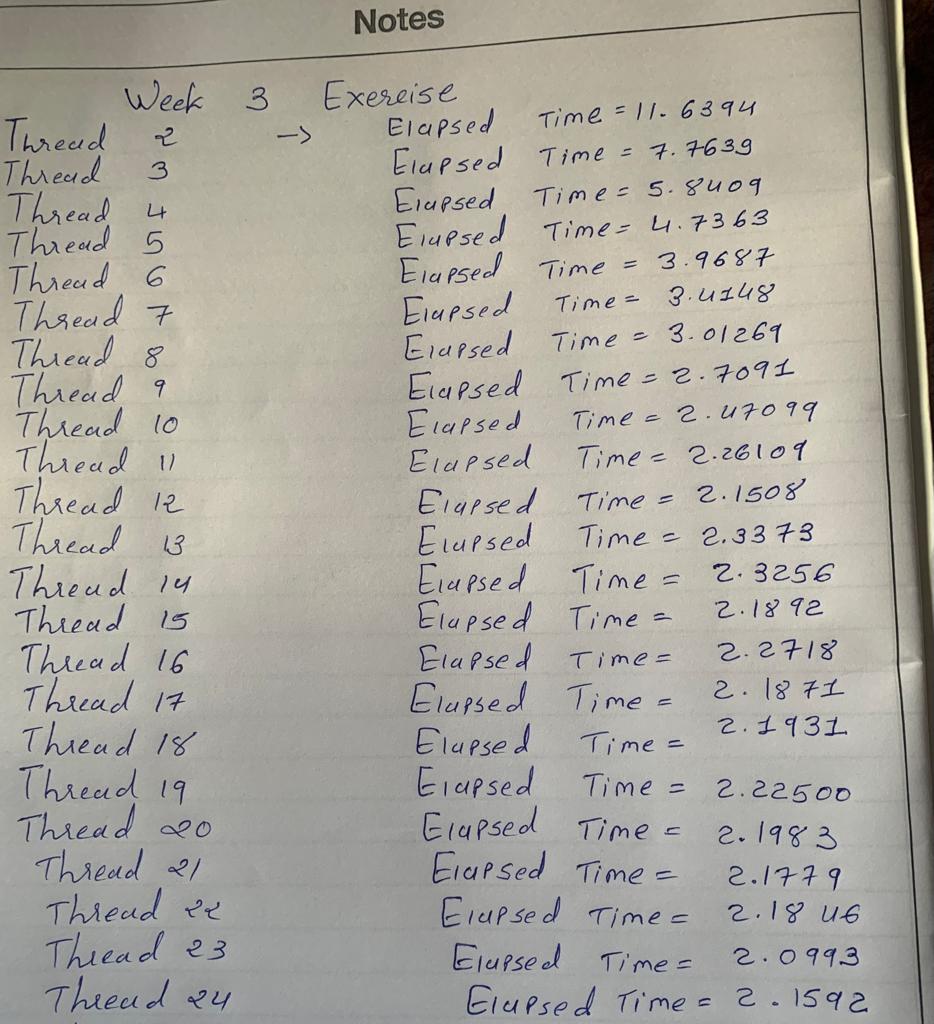 Notes
Week 3 Exercise
Thread 2 -> Elapsed Time = 11.6394
Thread 3 Elapsed Time = 7.7639
Thread 4 Elapsed Time = 5.8409
Thread 5 Elapsed Time = 4.7363
Thread 6 Elapsed Time = 3.9687
Thread 7 Elapsed Time = 3.4148
Thread 8 Elapsed Time = 3.01269
Thread 9 Elapsed Time = 2.7091
Thread 10 Elapsed Time = 2.47099
Thread 11 Elapsed Time = 2.26109
Thread 12 Elapsed Time = 2.1508
Thread 13 Elapsed Time = 2.3373
Thread 14 Elapsed Time = 2.3256
Thread 15 Elapsed Time = 2.1892
Thread 16 Elapsed Time = 2.2718
Thread 17 Elapsed Time = 2.1871
Thread 18 Elapsed Time = 2.1931
Thread 19 Elapsed Time = 2.22500
Thread 20 Elapsed Time = 2.1983
Thread 21 Elapsed Time = 2.1779
Thread 22 Elapsed Time = 2.1846
Thread 23 Elapsed Time = 2.0993
Thread 24 Elapsed Time = 2.1592